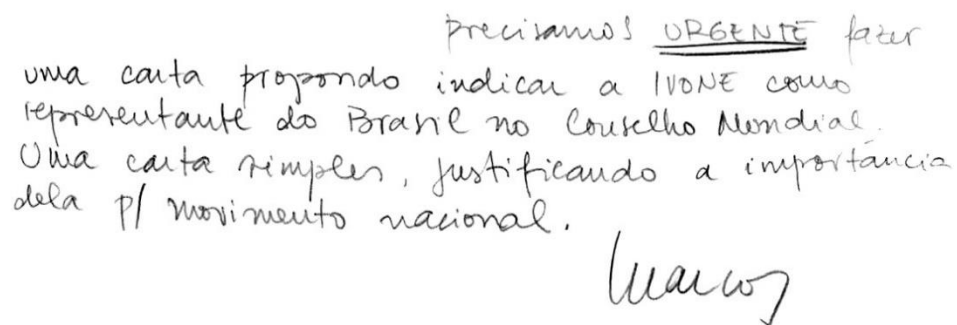 precisamos URGENTE fazer
uma carta propondo indicar a IVONE como
representante do Brasil no Conselho Mundial.
Uma carta simples, justificando a importância
dela p/ movimento nacional.
Marcos